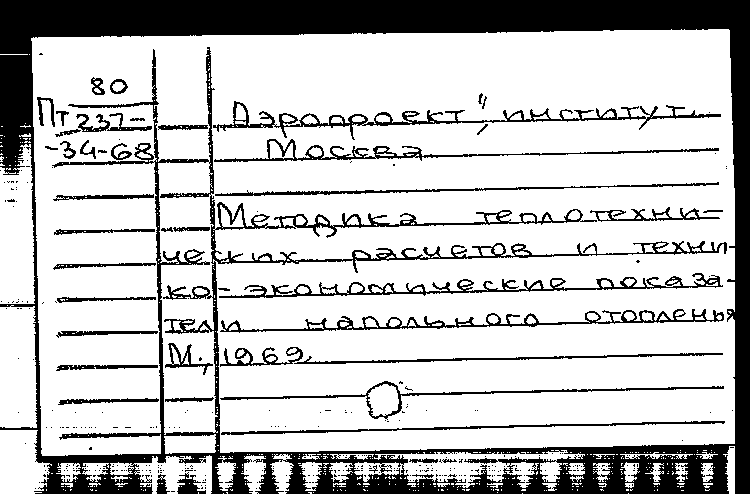 80
Пт 237-
-34-68
"Аэропроект", институт.
Москва
Методика теплотехни-
ческих расчетов и техни-
ко-экономические показа-
тели напольного отопленья
М., 1969